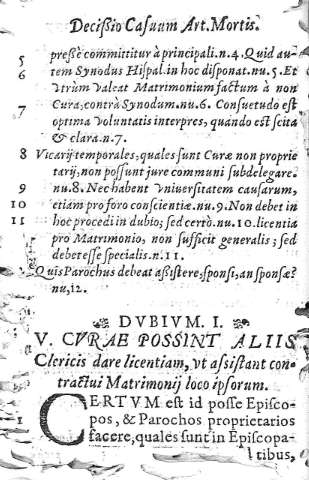 Decißio Casuum Art. Mortis.
presse committitur à principali. n. 4. Quid au-
5 tem Synodus Hispal. in hoc disponat. nu. 5. Et
6 Vtrùm valeat Matrimonium factum à non
Cura; contrà Synodum. nu. 6. Consuetudo est
7 optima voluntatis interpres, quando est scita
& clara. n. 7.
8 Vicarij temporales, quales sunt Curæ non proprie
tarij, non possunt jure communi subdelegare.
9 nu. 8. Nec habent Vniuersitatem causarum,
10 etiam pro foro conscientiæ. nu. 9. Non debet in
11 hoc procedi in dubio; sed certò. nu. 10. licentia
pro Matrimonio, non sufficit generalis; sed
debet esse specialis. n. 11.
Quis Parochus debeat assistere, sponsi, an sponsæ?
nu, 12.
DVBIVM. I.
V. CVRAE POSSINT ALIIS
Clericis dare licentiam, vt assistant con-
tractui Matrimonij loco ipsorum.
CERTVM est id posse Episco-
1 pos, & Parochos proprietarios
facere, quales sunt in Episcopa-
tibus,